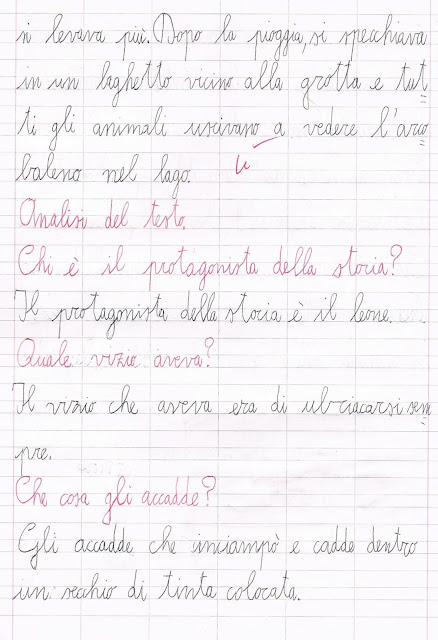 si levava più. Dopo la pioggia, si specchiava
in un laghetto vicino alla grotta e tut
ti gli animali uscivano a vedere l'arco
baleno nel lago.
Analisi del testo.
Chi è il protagonista della storia?
Il protagonista della storia è il leone.
Quale vizio aveva?
Il vizio che aveva era di ubriacarsi sem
pre.
Che cosa gli accadde?
Gli accadde che inciampò e cadde dentro
un secchio di tinta colorata.